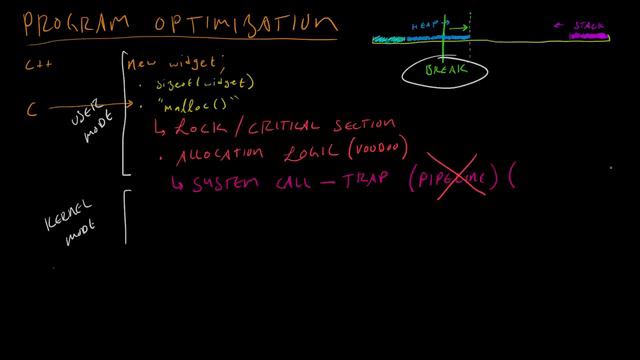 PROGRAM OPTIMIZATION
HEAP →
← STACK
BREAK
C++
New widget;
• sizeof(widget)
C
• "malloc()"
USER MODE
↳ LOCK / CRITICAL SECTION
• ALLOCATION LOGIC (VOODOO)
↳ SYSTEM CALL – TRAP (PIPELINE) (
KERNEL MODE